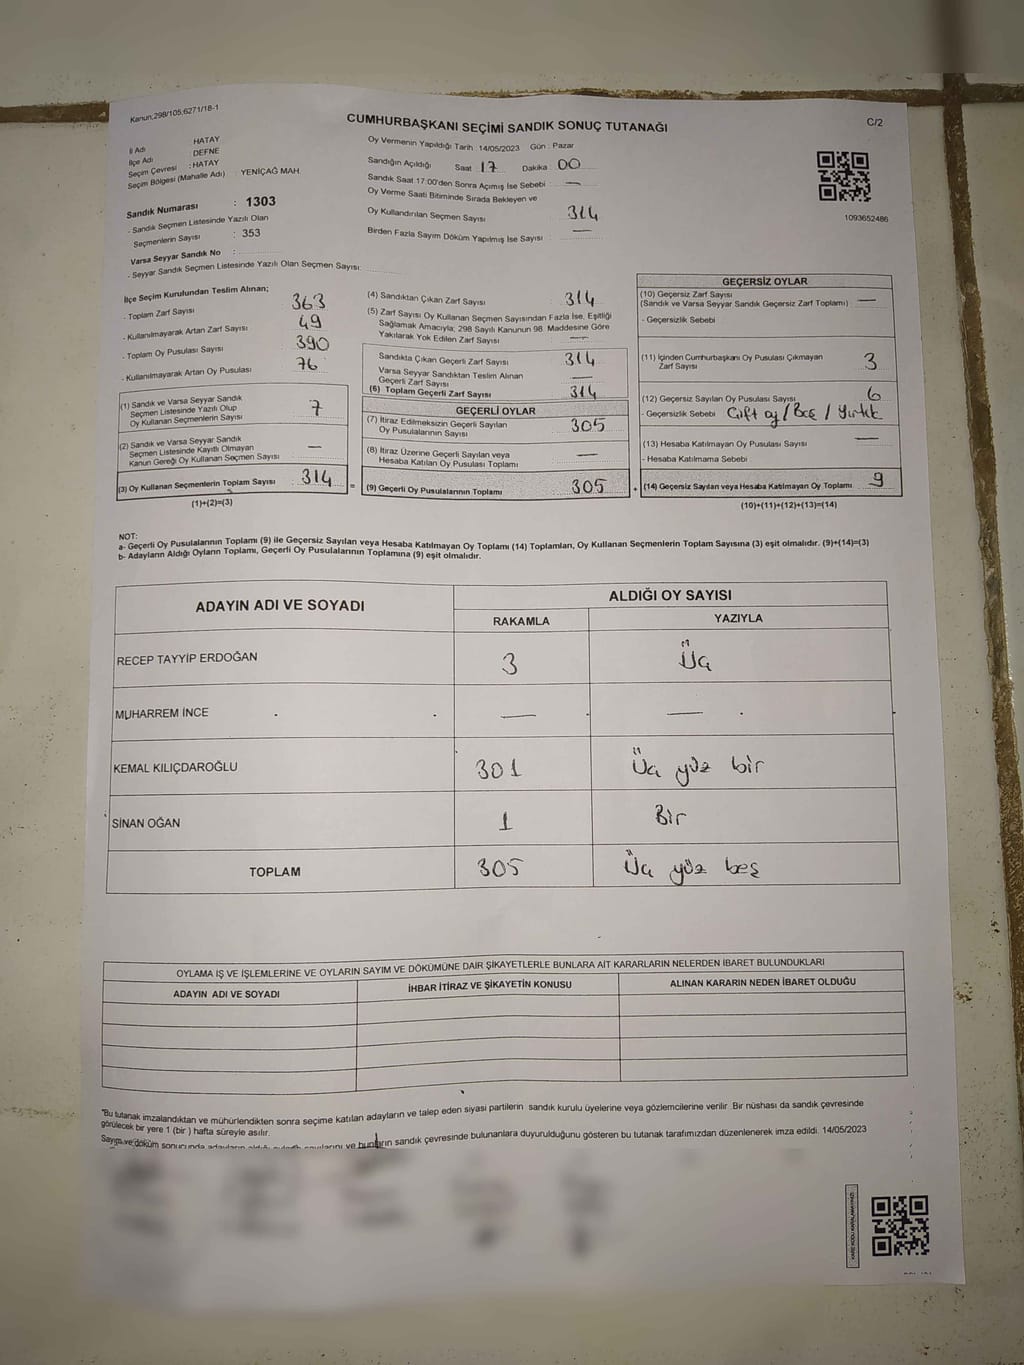 Kanun;298/105;6271/18-1
CUMHURBAŞKANI SEÇİMİ SANDIK SONUÇ TUTANAĞI
C/2
İl Adı HATAY
İlçe Adı : DEFNE
Seçim Çevresi : HATAY
Seçim Bölgesi (Mahalle Adı) : YENİÇAĞ MAH.
Sandık Numarası : 1303
- Sandık Seçmen Listesinde Yazılı Olan
Seçmenlerin Sayısı : 353
Varsa Seyyar Sandık No :
- Seyyar Sandık Seçmen Listesinde Yazılı Olan Seçmen Sayısı:
Oy Vermenin Yapıldığı Tarih : 14/05/2023 Gün : Pazar
Sandığın Açıldığı Saat 17 Dakika : 00
Sandık Saat 17:00'den Sonra Açımış İse Sebebi : —
Oy Verme Saati Bitiminde Sırada Bekleyen ve
Oy Kullandırılan Seçmen Sayısı 314
Birden Fazla Sayım Döküm Yapılmış İse Sayısı : —
1093652486
İlçe Seçim Kurulundan Teslim Alınan;
- Toplam Zarf Sayısı 363
- Kullanılmayarak Artan Zarf Sayısı 49
- Toplam Oy Pusulası Sayısı 390
- Kullanılmayarak Artan Oy Pusulası 76
(1) Sandık ve Varsa Seyyar Sandık
Seçmen Listesinde Yazılı Olup
Oy Kullanan Seçmenlerin Sayısı 7
(2) Sandık ve Varsa Seyyar Sandık
Seçmen Listesinde Kayıtlı Olmayan
Kanun Gereği Oy Kullanan Seçmen Sayısı —
(3) Oy Kullanan Seçmenlerin Toplam Sayısı 314
(1)+(2)=(3)
=
(4) Sandıktan Çıkan Zarf Sayısı : 314
(5) Zarf Sayısı Oy Kullanan Seçmen Sayısından Fazla İse, Eşitliği
Sağlamak Amacıyla; 298 Sayılı Kanunun 98. Maddesine Göre
Yakılarak Yok Edilen Zarf Sayısı —
Sandıkta Çıkan Geçerli Zarf Sayısı 314
Varsa Seyyar Sandıktan Teslim Alınan
Geçerli Zarf Sayısı —
(6) Toplam Geçerli Zarf Sayısı 314
GEÇERLİ OYLAR
(7) İtiraz Edilmeksizin Geçerli Sayılan
Oy Pusulalarının Sayısı 305
(8) İtiraz Üzerine Geçerli Sayılan veya
Hesaba Katılan Oy Pusulası Toplamı —
(9) Geçerli Oy Pusulalarının Toplamı 305
+
GEÇERSİZ OYLAR
(10) Geçersiz Zarf Sayısı
(Sandık ve Varsa Seyyar Sandık Geçersiz Zarf Toplamı) —
- Geçersizlik Sebebi
(11) İçinden Cumhurbaşkanı Oy Pusulası Çıkmayan
Zarf Sayısı 3
(12) Geçersiz Sayılan Oy Pusulası Sayısı 6
- Geçersizlik Sebebi Çift oy / Boş / Yırtık
(13) Hesaba Katılmayan Oy Pusulası Sayısı —
- Hesaba Katılmama Sebebi
(14) Geçersiz Sayılan veya Hesaba Katılmayan Oy Toplamı 9
(10)+(11)+(12)+(13)=(14)
NOT:
a- Geçerli Oy Pusulalarının Toplamı (9) ile Geçersiz Sayılan veya Hesaba Katılmayan Oy Toplamı (14) Toplamları, Oy Kullanan Seçmenlerin Toplam Sayısına (3) eşit olmalıdır. (9)+(14)=(3)
b- Adayların Aldığı Oyların Toplamı, Geçerli Oy Pusulalarının Toplamına (9) eşit olmalıdır.
ADAYIN ADI VE SOYADI ALDIĞI OY SAYISI
RAKAMLA YAZIYLA
RECEP TAYYİP ERDOĞAN 3 Üç
MUHARREM İNCE — —
KEMAL KILIÇDAROĞLU 301 Üç yüz bir
SİNAN OĞAN 1 Bir
TOPLAM 305 Üç yüz beş
OYLAMA İŞ VE İŞLEMLERİNE VE OYLARIN SAYIM VE DÖKÜMÜNE DAİR ŞİKAYETLERLE BUNLARA AİT KARARLARIN NELERDEN İBARET BULUNDUKLARI
ADAYIN ADI VE SOYADI İHBAR İTİRAZ VE ŞİKAYETİN KONUSU ALINAN KARARIN NEDEN İBARET OLDUĞU
"Bu tutanak imzalandıktan ve mühürlendikten sonra seçime katılan adayların ve talep eden siyasi partilerin sandık kurulu üyelerine veya gözlemcilerine verilir. Bir nüshası da sandık çevresinde
görülecek bir yere 1 (bir) hafta süreyle asılır.
Sayım ve döküm sonucunda adayların ve bunların sandık çevresinde bulunanlara duyurulduğunu gösteren bu tutanak tarafımızdan düzenlenerek imza edildi. 14/05/2023
KARE KODU KARALAMAYINIZ